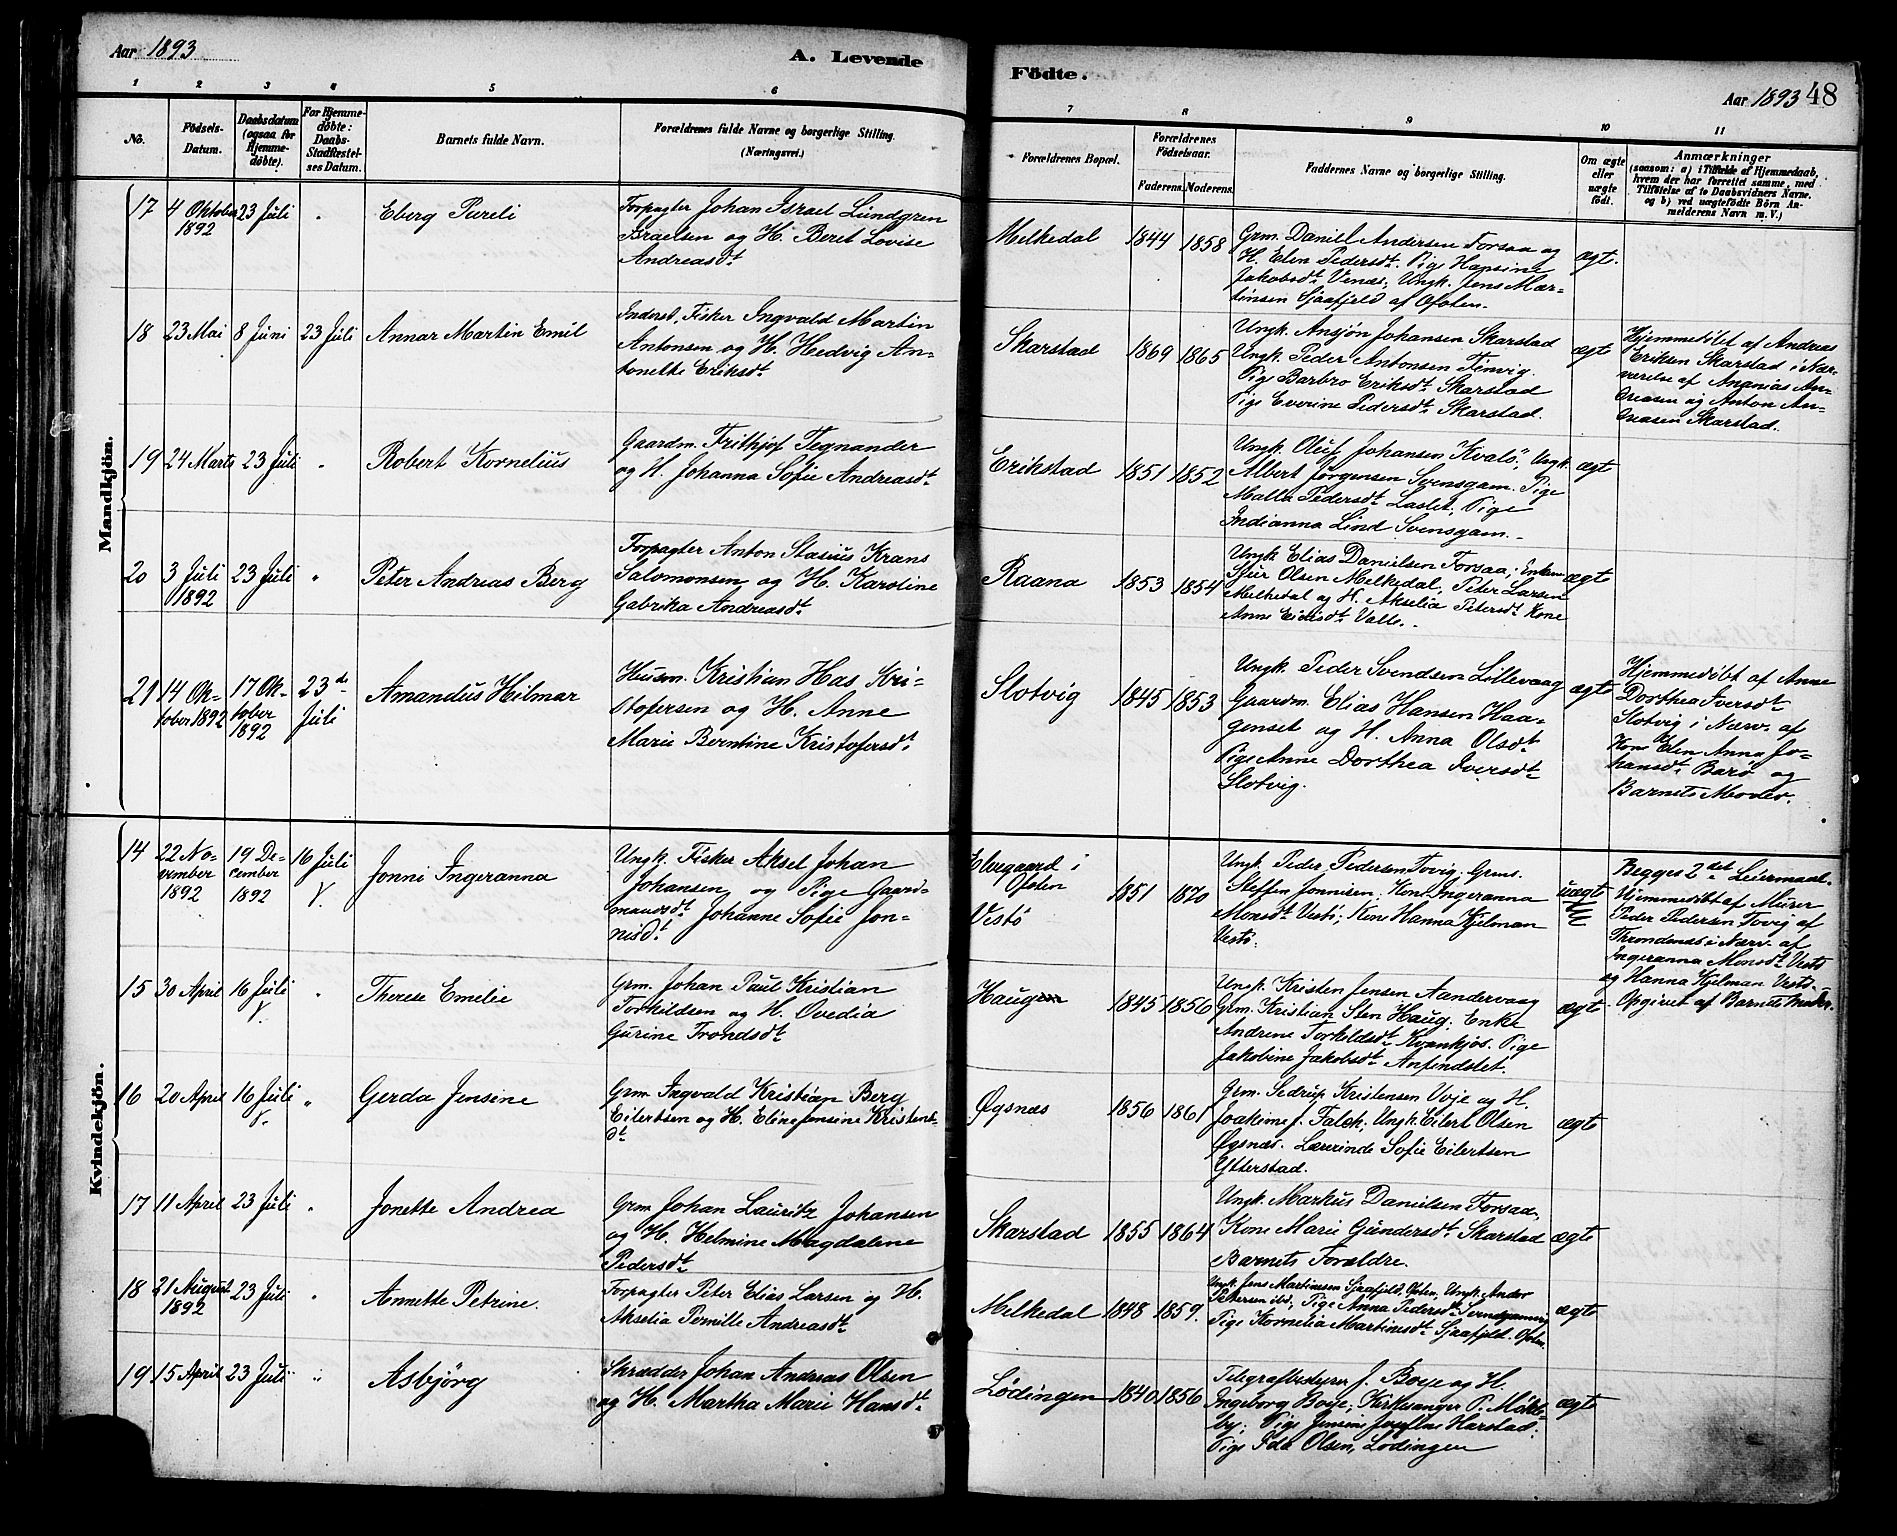 Aar 1893
A. Levende
Födte.
Aar 1893
48
1 2 3 4 5 6 7 8 9 10 11
No.
Födsels-
Datum.
Daabsdatum
(ogsaa for
Hjemme-
döbte).
For Hjemme-
döbte:
Daabs-
Stadfæstel-
ses Datum.
Barnets fulde Navn.
Forældrenes fulde Navne og borgerlige Stilling.
(Næringsvei.)
Forældrenes Bopæl.
Forældrenes
Födselsaar.
Faderens. Moderens.
Faddernes Navne og borgerlige Stilling.
Om ægte
eller
uægte
født.
Anmærkninger
(saasom: a) i Tilfælde af Hjemmedaab,
hvem der har forrettet samme, med
Tilföielse af to Daabsvidners Navne.
og b) ved uægtefödte Börn An-
melderens Navn m. V.)
Mandkjön.
17 4 Oktober
1892
23 Juli
"
Eberg Pareli
Forpagter Johan Israel Lundgren
Israelsen og H. Beret Lovise
Andreasdt
Melkedal 1844 1858
Grm. Daniel Andersen Forsaa og
H. Elen Pedersdt. Pige Hansine
Jakobsdt Venæs; Ungk. Jens Mar-
tinsen Sjaafjeld af Ofoten.
ægte.
18 23 Mai 8 Juni 23 Juli
Annar Martin Emil
Inderst, Fisker Ingvald Martin
Antonsen og H. Hedvig An-
tonette Eriksdt
Skarstad 1869 1865
Ungk. Ansjøn Johansen Skarstad
Ungk. Peder Antonsen Finvig.
Pige Barbro Eriksdt Skarstad
Pige Everine Pedersdt Skarstad.
ægte
Hjemmedøbt af Andreas
Eriksen Skarstad i Nær-
værelse af Ananias An-
dreasen og Anton An-
dreasen Skarstad.
19 24 Marts 23 Juli
"
Robert Kornelius
Gaardm. Frithjof Tegnander
og H. Johanna Sofie Andreasdt
Erikstad 1851 1852
Ungk. Oluf Johansen Kvalö; Ungk.
Albert Jørgensen Svensgam. Pige
Malla Pedersdt Laslet; Pige
Indianna Lind Svensgam.
ægt
20 3 Juli
1892
23 Juli
"
Peter Andreas Berg
Forpagter Anton Stasius Krans
Salomonsen og H. Karoline
Gabrika Andreasdt
Raana 1853 1854
Ungk Elias Danielsen Forsaa; Enkem
Sjur Olsen Melkedal. Peter Larsen
Melkedal og H. Akselia Petersdt Kone
Anne Valle.
ægte
21 14 Ok-
tober 1892
17 Ok-
tober
1892
23de
Juli
Amandus Hilmar
Husm. Kristian Has Kri-
stofersen og H. Anne
Marie Berntine Kristofersdt
Slotvig 1845 1853
Ungk. Peder Svendsen Lillevaag
Gaardm. Elias Hansen Haa-
genset og H. Anna Olsdt
Pige Anne Dorthea Iversdt
Slotvig.
ægte
Hjemmedöbt af Anne
Dorthea Iversdt
Slotvig i Nærv. af
Kone Elen Anna Jo-
hansdt Barø og
Barnets Moder.
Kvindekjön.
14 22 No-
vember
1892
19 De-
cember
1892
16 Juli
V.
Jonni Ingeranna
Ungk. Fisker Aksel Johan
Johansen og Pige Gaard-
mandsdt Johanne Sofie Jon-
nisdt
Elvegaard i
Ofoten
Vestö
1851 1870
Ungk Peder Pedersen Tovig; Grm.
Steffen Jonnisen. Kone Ingeranna
Monsdt Vestö; Kone Hanna Kjelman
Vestö.
uægte
Begges 2det Leiermaal.
Hjemmedöbt af Murer
Peder Pedersen Tovig af
Throndenæs i Nærv. af
Ingeranna Monsdt Vestö
og Hanna Kjelman Vestö.
Opgivet af Barnets Moder.
15 30 April 16 Juli
V.
"
Therese Emelie
Grm. Johan Paul Kristian
Torkildsen og H. Ovedia
Gurine Trondsdt
Haugen 1845 1856
Ungk. Kristen Jensen Aandervaag
Grm. Kristian Sten Haug; Enke
Andrene Torkeldsdt Kvankjos. Pige
Jakobine Jakobsdt Anfendslet.
ægte
16 20 April 16 Juli
V.
"
Gerda Jensine
Grm Ingvald Kristian Berg
Eilertsen og H. Eline Jensine Kristens-
dt
Øgsnæs 1856 1861
Grm. Sedrup Kristensen Voje og H.
Joakime J. Falch; Ungk. Eilert Olsen
Øgsnæs. Lærerinde Sofie Eilertsen
Ytterstad.
ægte
17 11 April 23 Juli
"
Jonette Andrea
Grm Johan Lauritz Johansen
og H. Helmine Magdalene
Pedersdt
Skarstad 1855 1864
Ungk. Markus Danielsen Forsaa,
Kone Marie Gundersdt Skarstad
Barnets Forældre.
ægte
18 21 August
1892
23 Juli
"
Annette Petrine.
Forpagter Peter Elias Larsen og H.
Akselia Pernille Andreasdt
Melkedal 1848 1859.
Ungk. Jens Martinesen Sjaafjeld, Ofoten, Ungk. Andor
Petersen ibd; Pige Anna Pedersdt
Pige Kornelia Martinesdt Sjaafjeld. Ofoten.
ægte
19 15 April 23 Juli
"
Asbjörg
Skrædder Johan Andreas Olsen
og H. Martha Marie Hansdt
Lödingen 1840 1856
Telegrafbestyrer J. Boye og H.
Ingeborg Boye; Kirkesanger P. Mökle-
by; Pige Jensine Harstad;
Pige Ida Olsen, Lödingen
ægte